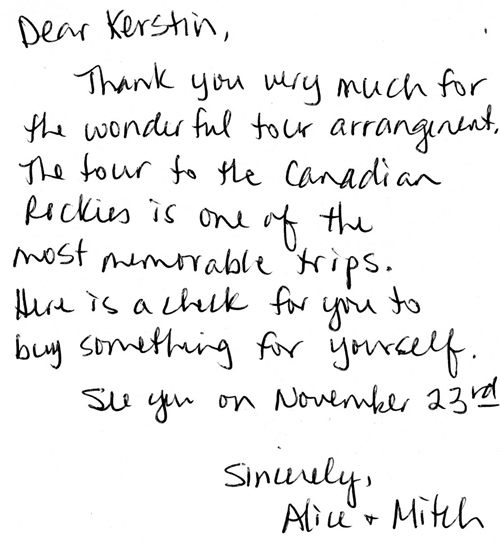 Dear Kerstin,
Thank you very much for
the wonderful tour arrangement.
The tour to the Canadian
Rockies is one of the
most memorable trips.
Here is a check for you to
buy something for yourself.
See you on November 23rd
Sincerely,
Alice + Mitch